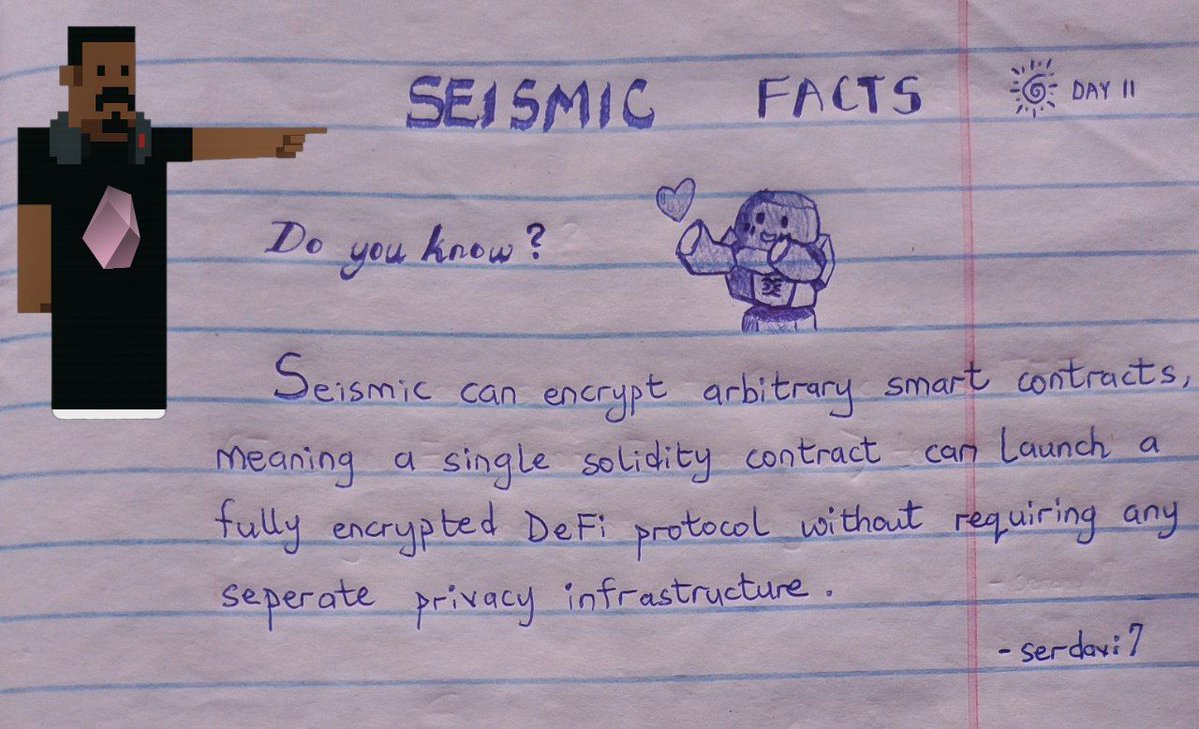 SEISMIC FACTS DAY 11
Do you know?
Seismic can encrypt arbitrary smart contracts,
meaning a single solidity contract can launch a
fully encrypted DeFi protocol without requiring any
seperate privacy infrastructure.
- serdavi7